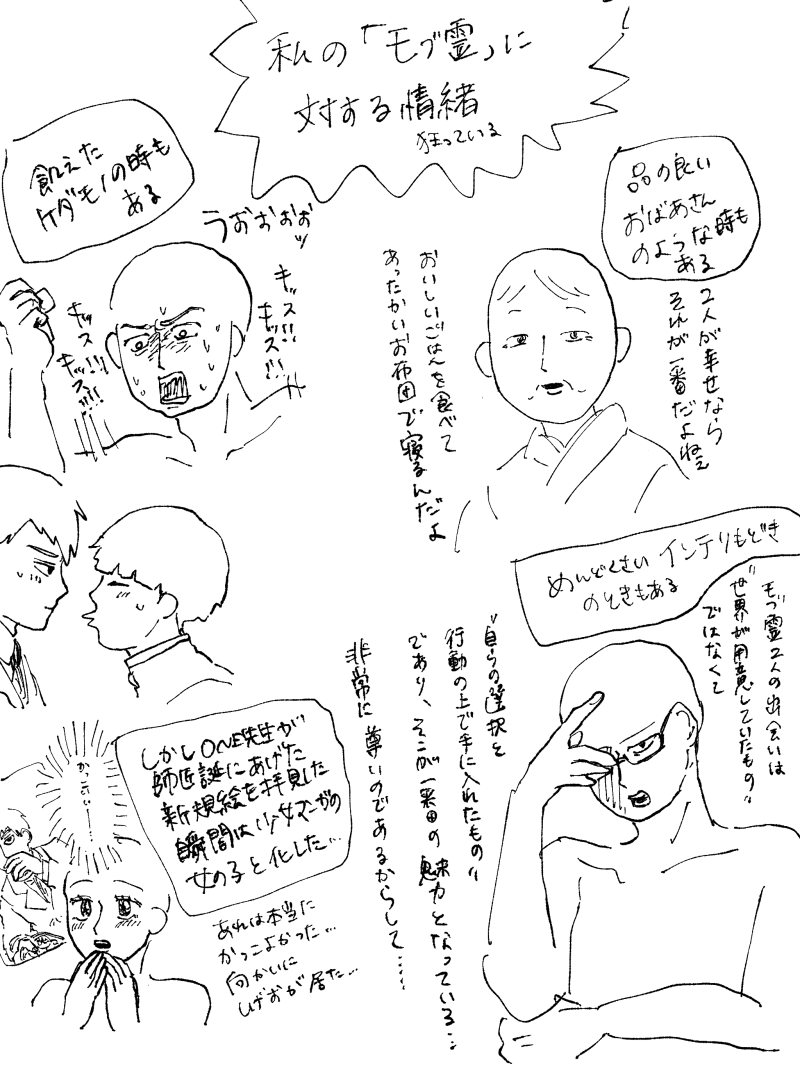 私の「モブ霊」に
対する情緒
狂っている
品の良い
おばあさん
のような時も
ある
2人が幸せなら
それが一番だよねぇ
おいしいごはんを食べて
あったかいお布団で寝るんだよ
飢えた
ケダモノの時も
ある
うおぉぉぉッ
キッス!!
キッス!!!
キッス!!!
キッス!!!
めんどくさいインテリもどき
のときもある
モブ霊2人の出会いは
"世界が用意していたもの"
ではなくて
"自らの選択と
行動の上で手に入れたもの"
であり、そこが一番の魅力となっている…
非常に尊いのであるからして……
しかしONE先生が
師匠誕にあげた
新規絵を拝見した
瞬間は少女マンガの
女の子と化した…
かっこいい……
あれは本当に
かっこよかった…
向かいに
しげおが居た…